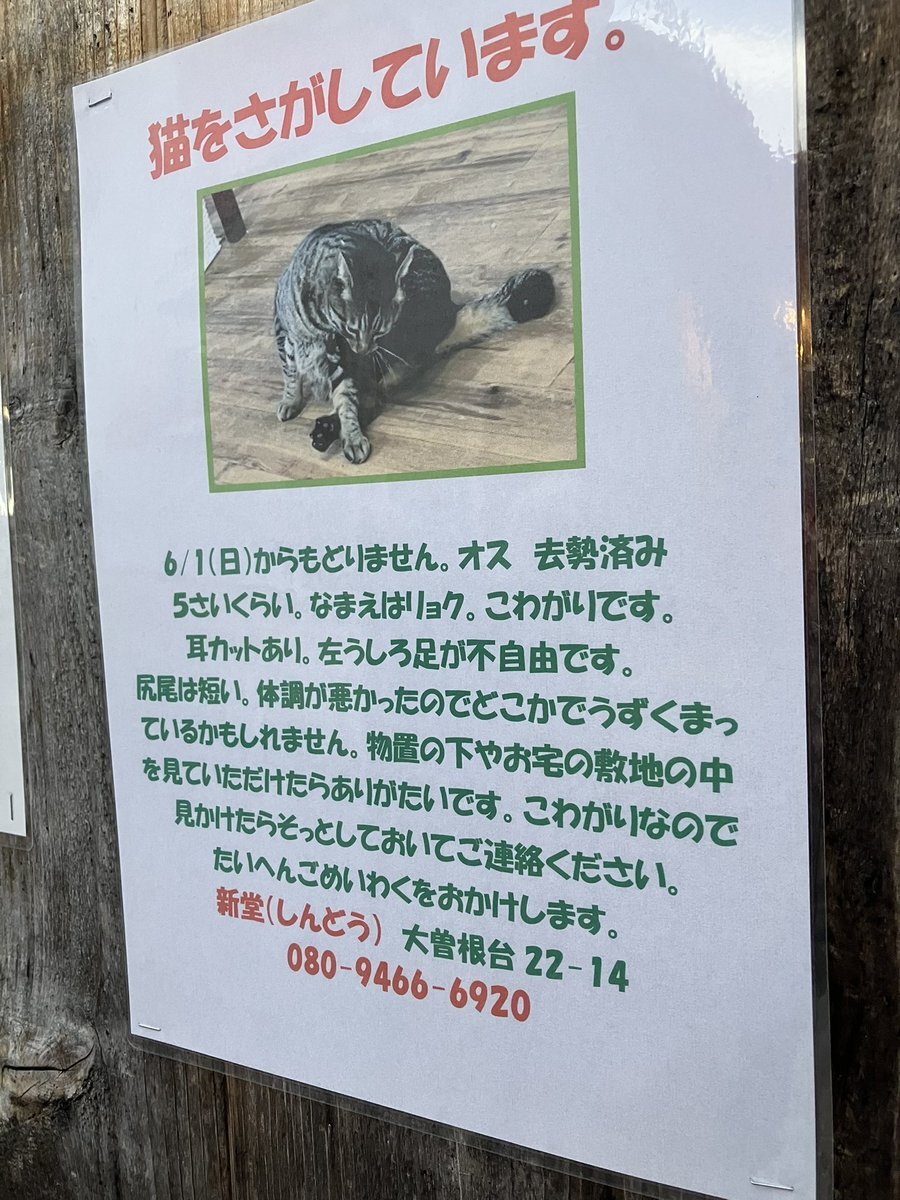 猫をさがしています。
6/1(日)からもどりません。オス 去勢済み
5さいくらい。なまえはリョク。こわがりです。
耳カットあり。左うしろ足が不自由です。
尻尾は短い。体調が悪かったのでどこかでうずくまっ
ているかもしれません。物置の下やお宅の敷地の中
を見ていただけたらありがたいです。こわがりなので
見かけたらそっとしておいてご連絡ください。
たいへんごめいわくをおかけします。
新堂(しんどう) 大曽根台 22-14
080-9466-6920